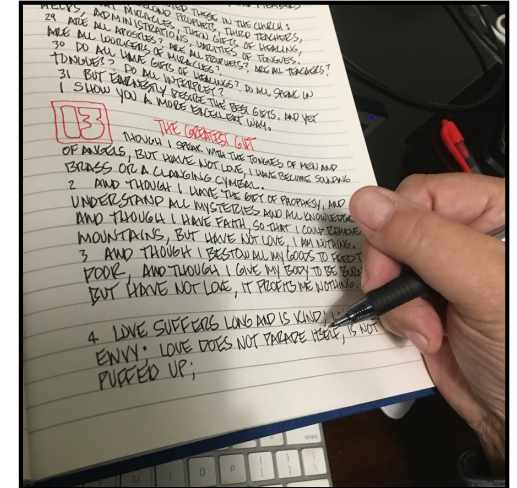 THESE IN THE CHURCH:
PROPHETS, THIRD TEACHERS,
HELPS, ADMINISTRATIONS, VARIETIES OF TONGUES.
29 ARE ALL APOSTLES? ARE ALL PROPHETS? ARE ALL TEACHERS?
ARE ALL WORKERS OF MIRACLES?
30 DO ALL HAVE GIFTS OF HEALINGS? DO ALL SPEAK IN
TONGUES? DO ALL INTERPRET?
31 BUT EARNESTLY DESIRE THE BEST GIFTS. AND YET
I SHOW YOU A MORE EXCELLENT WAY.
THE GREATEST GIFT
THOUGH I SPEAK WITH THE TONGUES OF MEN AND
OF ANGELS, BUT HAVE NOT LOVE, I HAVE BECOME SOUNDING
BRASS OR A CLANGING CYMBAL.
2 AND THOUGH I HAVE THE GIFT OF PROPHESY, AND
UNDERSTAND ALL MYSTERIES AND ALL KNOWLEDGE
AND THOUGH I HAVE FAITH, SO THAT I COULD REMOVE
MOUNTAINS, BUT HAVE NOT LOVE, I AM NOTHING.
3 AND THOUGH I BESTOW ALL MY GOODS TO FEED T
POOR, AND THOUGH I GIVE MY BODY TO BE BURN
BUT HAVE NOT LOVE, IT PROFITS ME NOTHING.
4 LOVE SUFFERS LONG AND IS KIND;
ENVY; LOVE DOES NOT PARADE ITSELF, IS NOT
PUFFED UP;